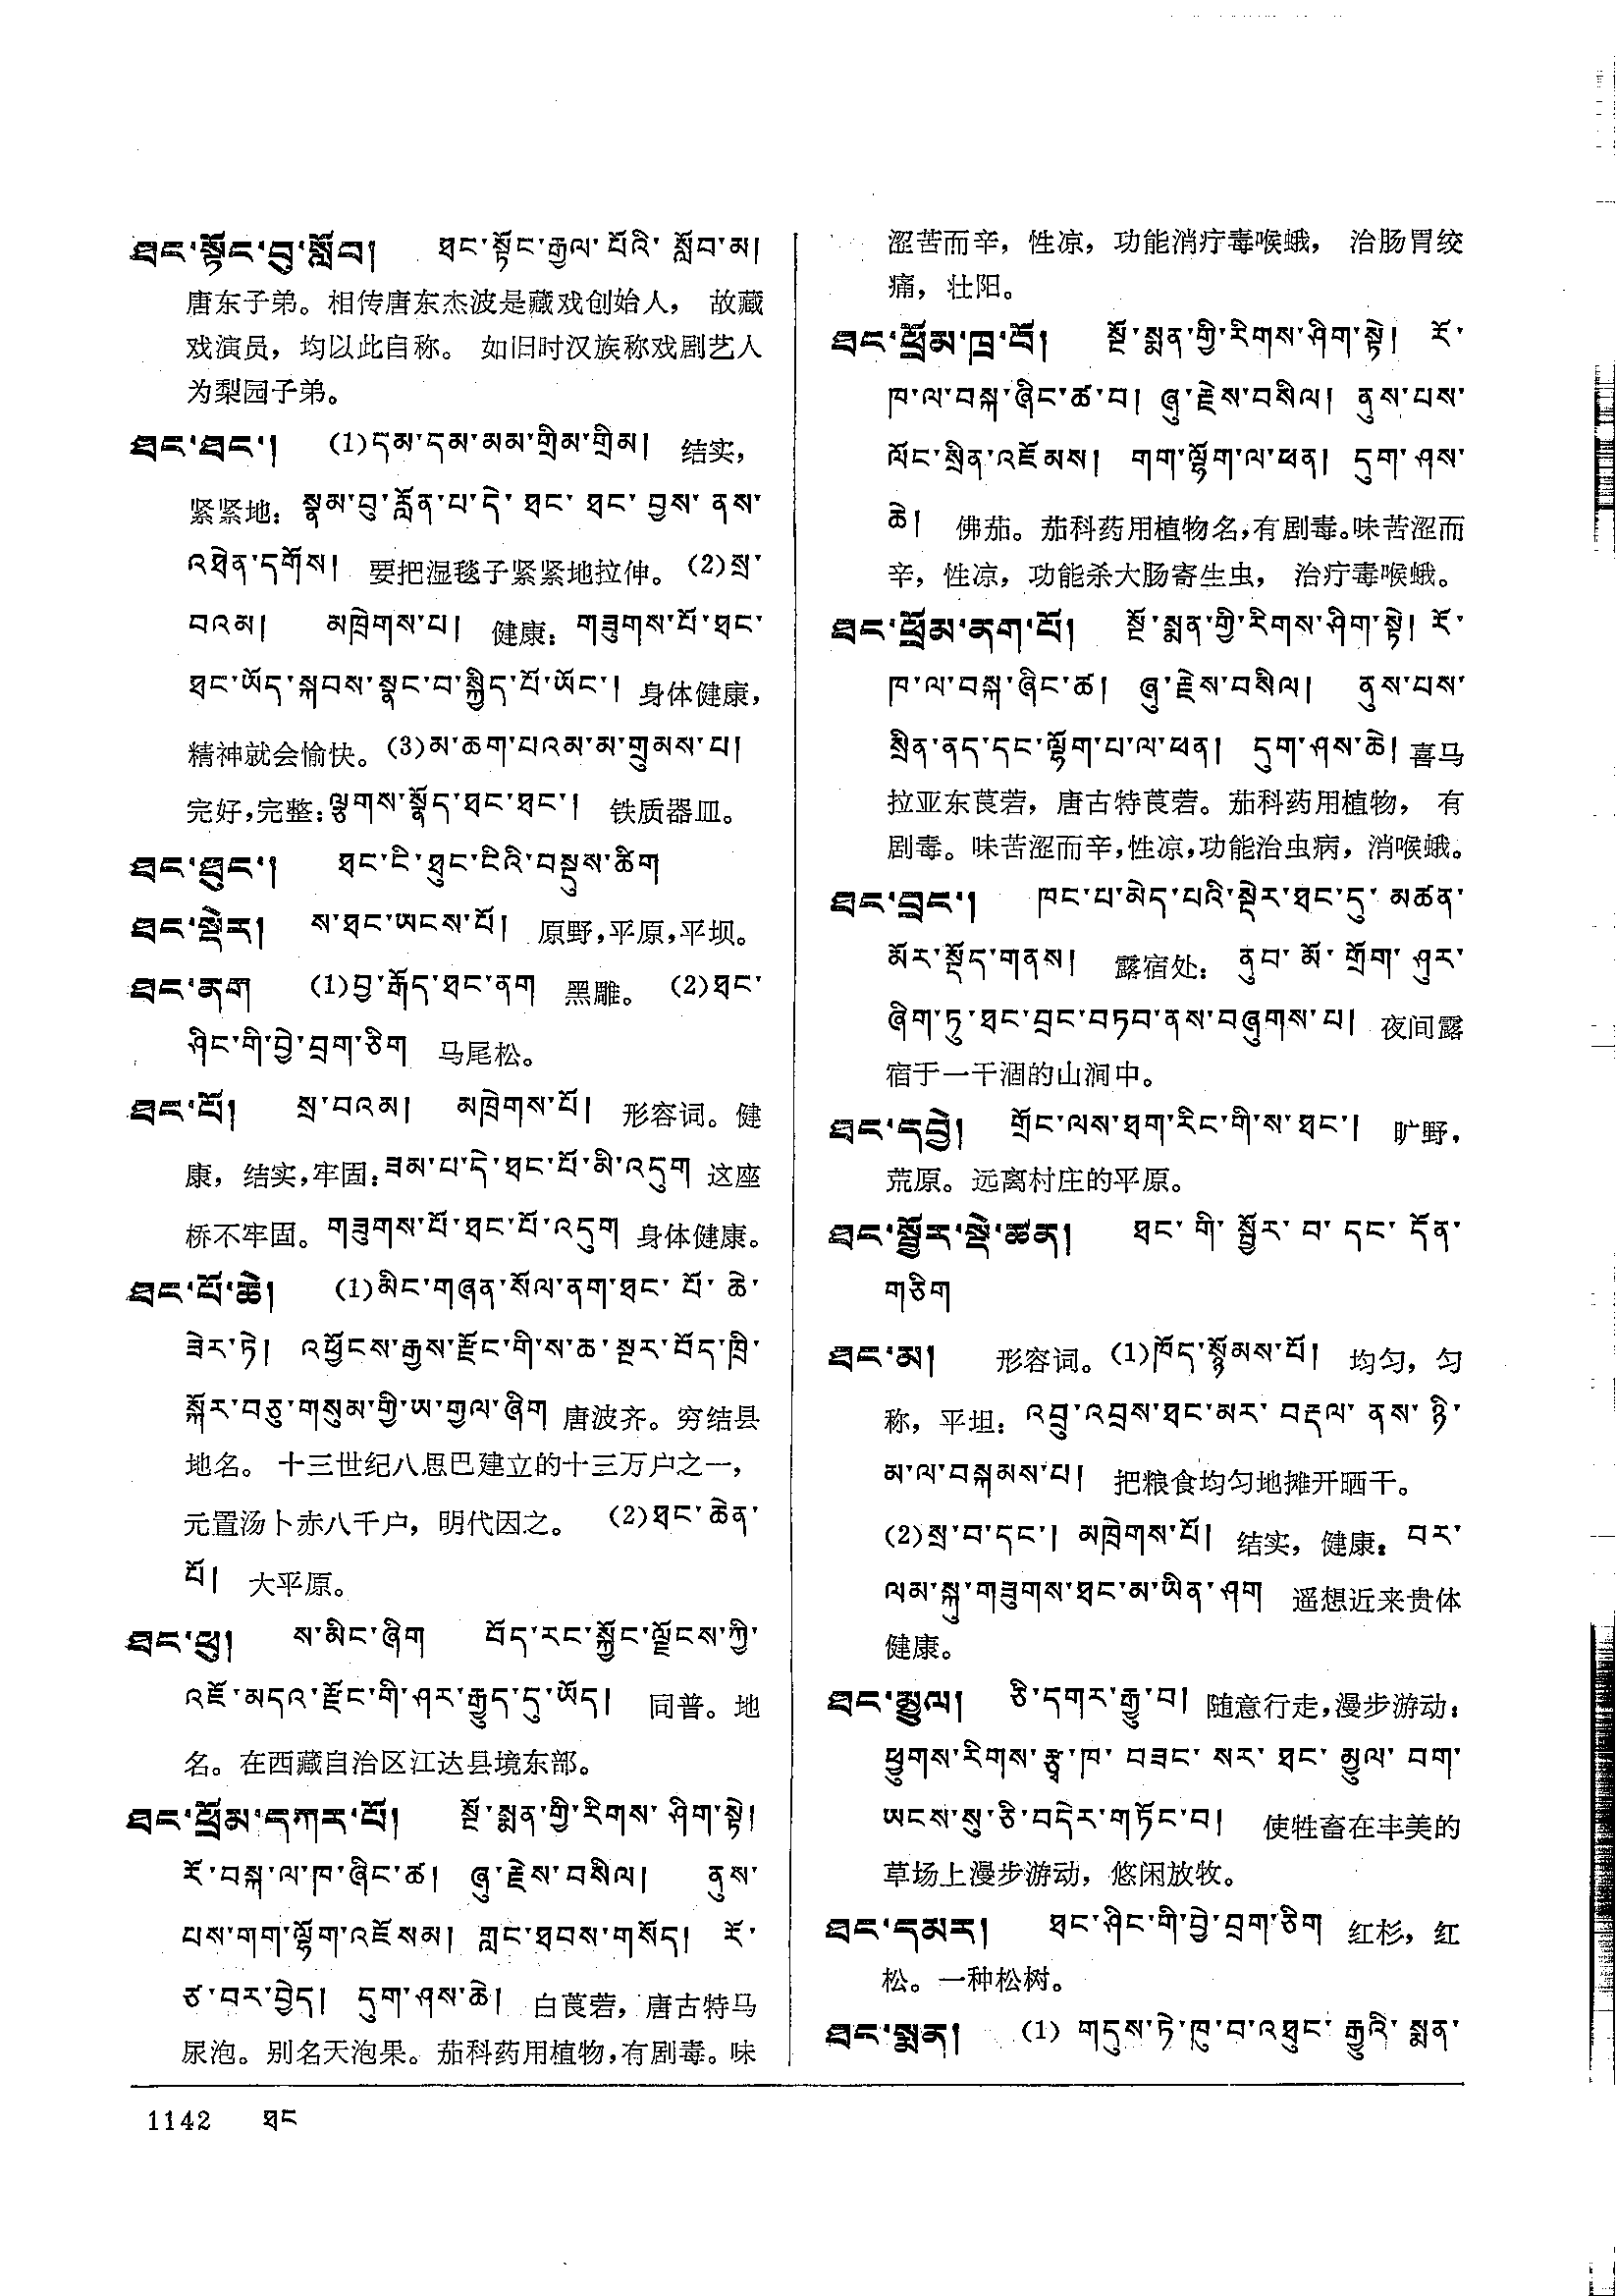 ཐང་སྟོང་བུ་སློབ། ཐང་སྟོང་རྒྱལ་པོའི་སློབ་མ།
唐东子弟。相传唐东杰波是藏戏创始人， 故藏
戏演员，均以此自称。 如旧时汉族称戏剧艺人
为梨园子弟。
ཐང་ཐང་། (1)དམ་དམ་མམ་གྲིམ་གྲིམ། 结实，
紧紧地：སྣམ་བུ་རློན་པ་དེ་ཐང་ཐང་བྱས་ནས་
འཐེན་དགོས། 要把湿毯子紧紧地拉伸。(2)སྲ་
བའམ། མཁྲེགས་པ། 健康：གཟུགས་པོ་ཐང་
ཐང་ཡོད་སྐབས་སྣང་བ་སྐྱིད་པོ་ཡོང་། 身体健康，
精神就会愉快。(3)མ་ཆག་པའམ་མ་གྲུམས་པ།
完好，完整：ལྕགས་སྣོད་ཐང་ཐང་། 铁质器皿。
ཐང་ཐུང་། ཐང་ངེ་ཐུང་ངེའི་བསྡུས་ཚིག
ཐང་སྡེར། ས་ཐང་ཡངས་པོ། 原野，平原，平坝。
ཐང་ནག (1)བྱ་རྒོད་ཐང་ནག 黑雕。 (2)ཐང་
ཤིང་གི་བྱེ་བྲག་ཅིག 马尾松。
ཐང་པོ། སྲ་བའམ། མཁྲེགས་པོ། 形容词。健
康，结实，牢固：ཟམ་པ་དེ་ཐང་པོ་མི་འདུག 这座
桥不牢固。གཟུགས་པོ་ཐང་པོ་འདུག 身体健康。
ཐང་པོ་ཆེ། (1)མིང་གཞན་སོལ་ནག་ཐང་པོ་ཆེ་
ཟེར་ཏེ། འཕྱོངས་རྒྱས་རྫོང་གི་ས་ཆ་སྔར་བོད་ཁྲི་
སྐོར་བཅུ་གསུམ་གྱི་ཨ་གྱལ་ཞིག 唐波齐。穷结县
地名。 十三世纪八思巴建立的十三万户之一，
元置汤卜赤八千户，明代因之。 (2)ཐང་ཆེན་
པོ། 大平原。
ཐང་ཕུ། ས་མིང་ཞིག བོད་རང་སྐྱོང་ལྗོངས་ཀྱི་
འཇོ་མདའ་རྫོང་གི་ཤར་རྒྱུད་དུ་ཡོད། 同普。地
名。在西藏自治区江达县境东部。
ཐང་ཕྲོམ་དཀར་པོ། སྔོ་སྨན་གྱི་རིགས་ཤིག་སྟེ།
རོ་བསྐ་ལ་ཁ་ཞིང་ཚ། ཞུ་རྗེས་བསིལ། ནུས་
པས་གག་ལྷོག་འཇོམས། གླང་ཐབས་གསོད། རོ་
ཙ་བར་བྱེད། དུག་ཤས་ཆེ། 白莨菪，唐古特马
尿泡。别名天泡果。茄科药用植物，有剧毒。味
涩苦而辛，性凉，功能消疗毒喉蛾， 治肠胃绞
痛，壮阳。
ཐང་ཕྲོམ་ཁྲ་བོ། སྔོ་སྨན་གྱི་རིགས་ཤིག་སྟེ། རོ་
ཁ་ལ་བསྐ་ཞིང་ཚ་བ། ཞུ་རྗེས་བསིལ། ནུས་པས་
ལོང་སྲིན་འཇོམས། གག་ལྷོག་ལ་ཕན། དུག་ཤས་
ཆེ། 佛茄。茄科药用植物名，有剧毒。味苦涩而
辛，性凉，功能杀大肠寄生虫， 治疗毒喉蛾。
ཐང་ཕྲོམ་ནག་པོ། སྔོ་སྨན་གྱི་རིགས་ཤིག་སྟེ། རོ་
ཁ་ལ་བསྐ་ཞིང་ཚ། ཞུ་རྗེས་བསིལ། ནུས་པས་
སྲིན་ནད་དང་ལྷོག་པ་ལ་ཕན། དུག་ཤས་ཆེ། 喜马
拉亚东莨菪，唐古特莨菪。茄科药用植物， 有
剧毒。味苦涩而辛，性凉，功能治虫病，消喉蛾。
ཐང་བྲང་། ཁང་པ་མེད་པའི་སྡེར་ཐང་དུ་མཚན་
མོར་སྡོད་གནས། 露宿处： ནུབ་མོ་གྲོག་ཤུར་
ཞིག་ཏུ་ཐང་བྲང་བཏབ་ནས་བཞུགས་པ། 夜间露
宿于一干涸的山涧中。
ཐང་དབྱེ། གྲོང་ལས་ཐག་རིང་གི་ས་ཐང་། 旷野，
荒原。远离村庄的平原。
ཐང་སྦྱོར་སྡེ་ཚན། ཐང་གི་སྦྱོར་བ་དང་དོན་
གཅིག
ཐང་མ། 形容词。(1)ཁོད་སྙོམས་པོ། 均匀，匀
称，平坦：འབྲུ་འབྲས་ཐང་མར་བརྡལ་ནས་ཉི་
མ་ལ་བསྐམས་པ། 把粮食均匀地摊开晒干。
(2)སྲ་བ་དང་། མཁྲེགས་པོ། 结实，健康：བར་
ལམ་སྐུ་གཟུགས་ཐང་མ་ཡིན་ཤག 遥想近来贵体
健康。
ཐང་མྱུལ། ཅི་དགར་རྒྱུ་བ། 随意行走，漫步游动：
ཕྱུགས་རིགས་རྩྭ་ཁ་བཟང་སར་ཐང་མྱུལ་བག་
ཡངས་སུ་ཅི་བདེར་གཏོང་བ། 使牲畜在丰美的
草场上漫步游动，悠闲放牧。
ཐང་དམར། ཐང་ཤིང་གི་བྱེ་བྲག་ཅིག 红杉，红
松。一种松树。
ཐང་སྨན། (1) གདུས་ཏེ་ཁུ་བ་འཐུང་རྒྱུའི་སྨན་
1142 ཐང